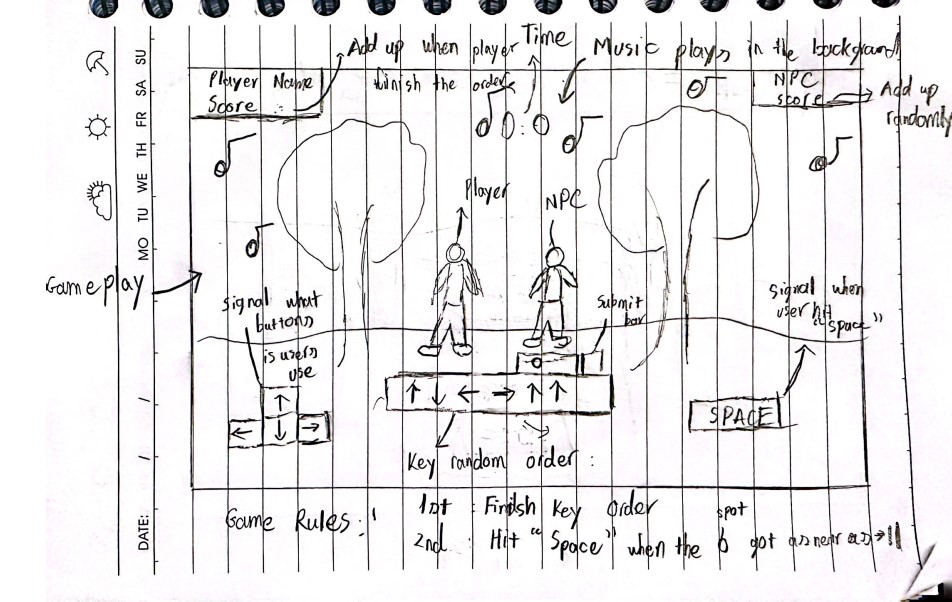 Add up when player
finish the order
Time
Music plays in the background
Player Name
Score
0:0
NPC
score
Add up
randomly
SU
SA
FR
TH
WE
TU
MO
DATE: / /
Player
NPC
Gameplay
signal what
buttons
is users
use
submit
bar
signal when
user hit
"space"
↑
← ↓ →
↑ ↓ ← → ↑ ↑
SPACE
Key random order :
Game Rules :
1st : Finish Key Order
2nd : Hit "Space" when the spot got as near as → ||